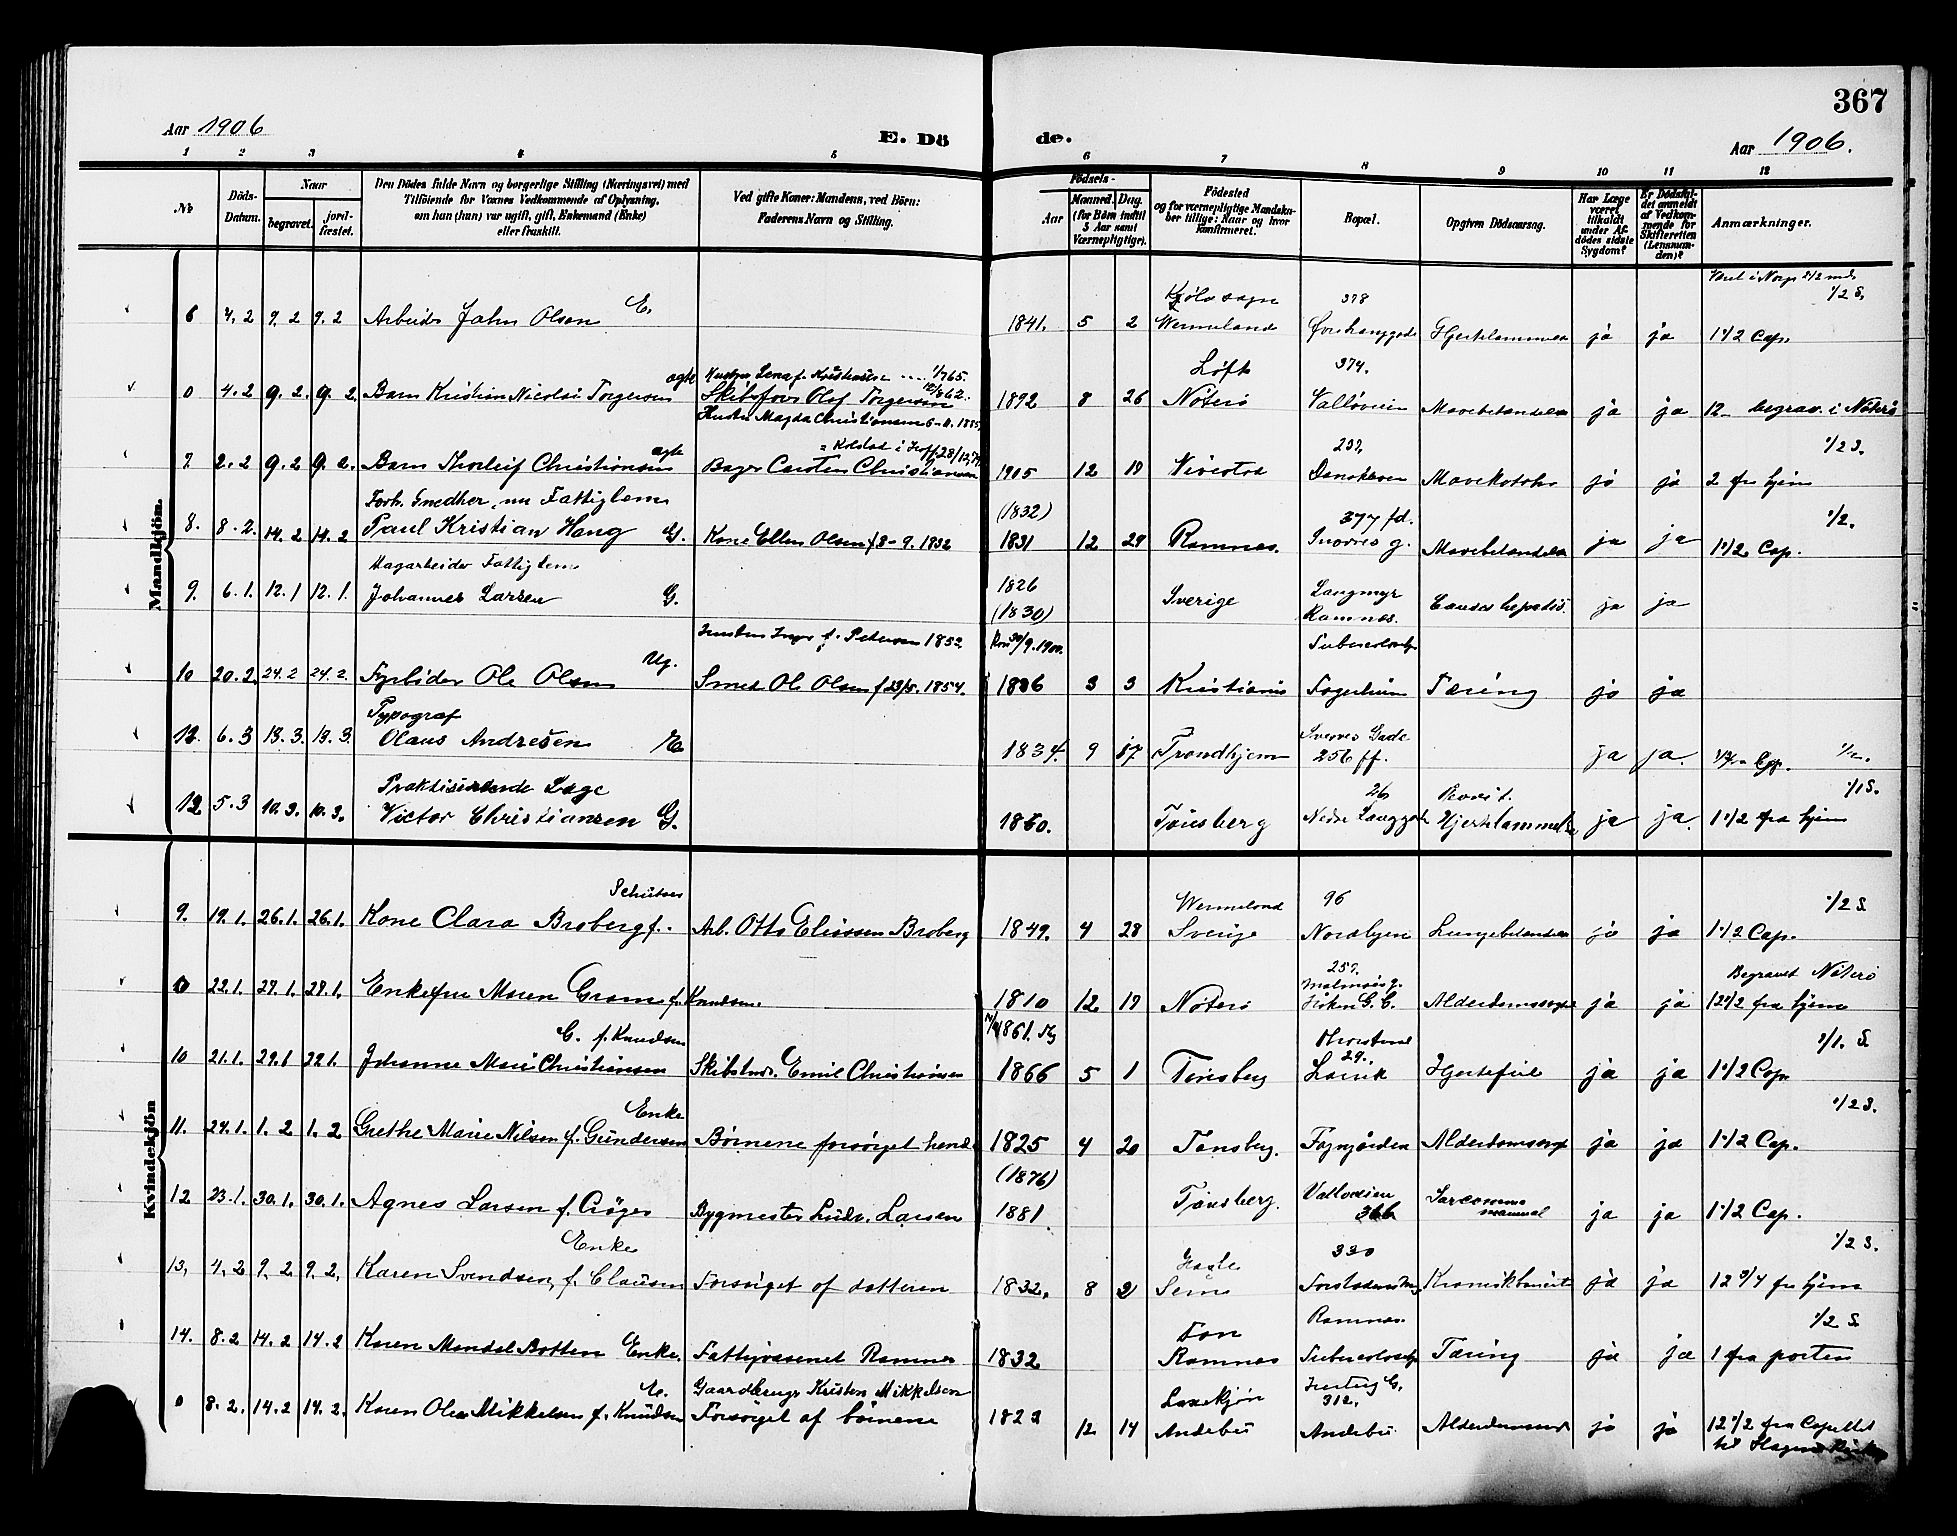 367
Aar 1906
E. Döde.
Aar 1906.
1 2 3 4 5 6 7 8 9 10 11 12
№
Döds-Datum.
Naar
begravet.
jordfæstet.
Den Dödes fulde Navn og borgerlige Stilling (Næringsvei) med
Tilföiende for Voxnes Vedkommende af Oplysning,
om hun (hun) var ugift, gift, Enkemand (Enke)
eller fraskilt.
Ved gifte Koner: Mandens, ved Börn:
Faderens Navn og Stilling.
Födsels-
Aar
Maaned. Dag.
(for Börn indtil
5 Aar samt
Værnepligtige).
Födested
og for værnepligtige Mandskaber tillige: Naar og hvor
konfirmeret.
Bopæl.
Opgiven Dödsaarsag.
Har Læge
været
tilkaldt
under Afdödes sidste
Sygdom?
Er Dödsfaldet anmeldt
af Vedkommende for
Skifteretten
(Lensmanden)?
Anmærkninger.
Mandkjön.
6 4.2 9.2 9.2 Arbeider John Olsen E. 1841. 5 2 Wermeland 378 Hjertelammelse ja ja 1 1/2 Cap.
0 4.2 9.2 9.2 Barn Kristian Nicolai Torgersen ægte Olaf Torgersen 1892 8 26 Nøterø 374. Valløveien Mavebetændelse ja ja 12 begrav. i Nøterø
Hustru Magda Christiansen 1885
1/2 S.
7. 2.2 9.2 9.2. Barn Thorleif Christiansen ægte Bager Carsten Christiansen 1905 12 19 237, Mavekatarrh ja ja 2 fra hjem
Forh. Smedher, nu Fattiglem
8. 8.2. 14.2 14.2 Paul Kristian Haug G. Kone Ellen Olsen f 8-9. 1832 (1832) 1831 12 29 Ramnes. 377 fd. Mavebetændelse ja ja 1 1/2 Cap.
Fattiglem
9. 6.1. 12.1 12.1. Johannes Larsen G. 1826 (1830) Sverige Langmyr Ramnes. Cancer hepatis. ja ja
f. Petersen 1852
10 20.2. 24.2 24.2. Fyrbøder Ole Olsen Ug. Smed Ole Olsen f 23/5. 1854. 3 3 Kristiania Fagerheim Tæring ja ja
Typograf
6.3 13.3. 13.3. Olaus Andresen E 1834. 9 17 Trondhjem Svends Gade 256 ff. ja ja.
Praktiserende Læge
12. 5.3 10.3. 10.3. Victor Christiansen G. 1860. Tønsberg 26 Nedre Langgade Hjertelammelse ja ja. 1 1/2 fra hjem
1/1 S.
Kvindekjön
9. 19.1. 26.1. 26.1. Kone Clara Broberg f. Arb. Otto Eliassen Broberg 1849. 4 28 Wermeland Sverige 96 Nordbyen Lungebetændelse ja ja 1 1/2 Cap.
1/2 S
0 22.1. 27.1. 27.1. Enkefru Maren Gram f. Knudsen 1810 12 17 Nøterø 257. Alderdomssvaghed ja ja 12 1/2 fra hjem
Begravet Nøterø
G. f. Knudsen
10 21.1. 29.1 29.1. Johanne Marie Christiansen Skibstm. Emil Christiansen 1866 5 1 Tønsberg 29. Hjertefeil ja ja 1 1/2 Cap
1/1. S.
Enke
11. 24.1. 1.2 1.2 Grethe Marie Nilsen f. Gundersen Børnene forsørget hende 1825 4 20 Tønsberg. Alderdomssvaghed ja ja 1 1/2 Cap.
1/2 S.
12 23.1. 30.1. 30.1. Agnes Larsen f. Crøger Bygmester Ludv. Larsen (1876) 1881 Tønsberg. Valløveien 366 Sarcomma mammal ja ja 1 1/2 Cap.
Enke
13, 4.2 9.2 9.2, Karen Svendsen, f. Clausen Forsørget af datteren 1832. 8 2 Sem 330 ja ja 12 3/4 fra hjem
1/2 S.
14. 8.2 14.2 14.2 Karen Enke. Fattigvæsenet Ramnes 1832 Fon Ramnes Ramnes. Tæring ja ja 1 fra porten
1/2 S
0 8.2. 14.2 14.2. Karen Olea Mikkelsen f. Knudsen E. Gaardbruger Kristen Mikkelsen Forsørget af børnene 1823 12 14 Andebu 312. Andebu Alderdomssvaghed ja ja 12 1/2 fra Capellet
til